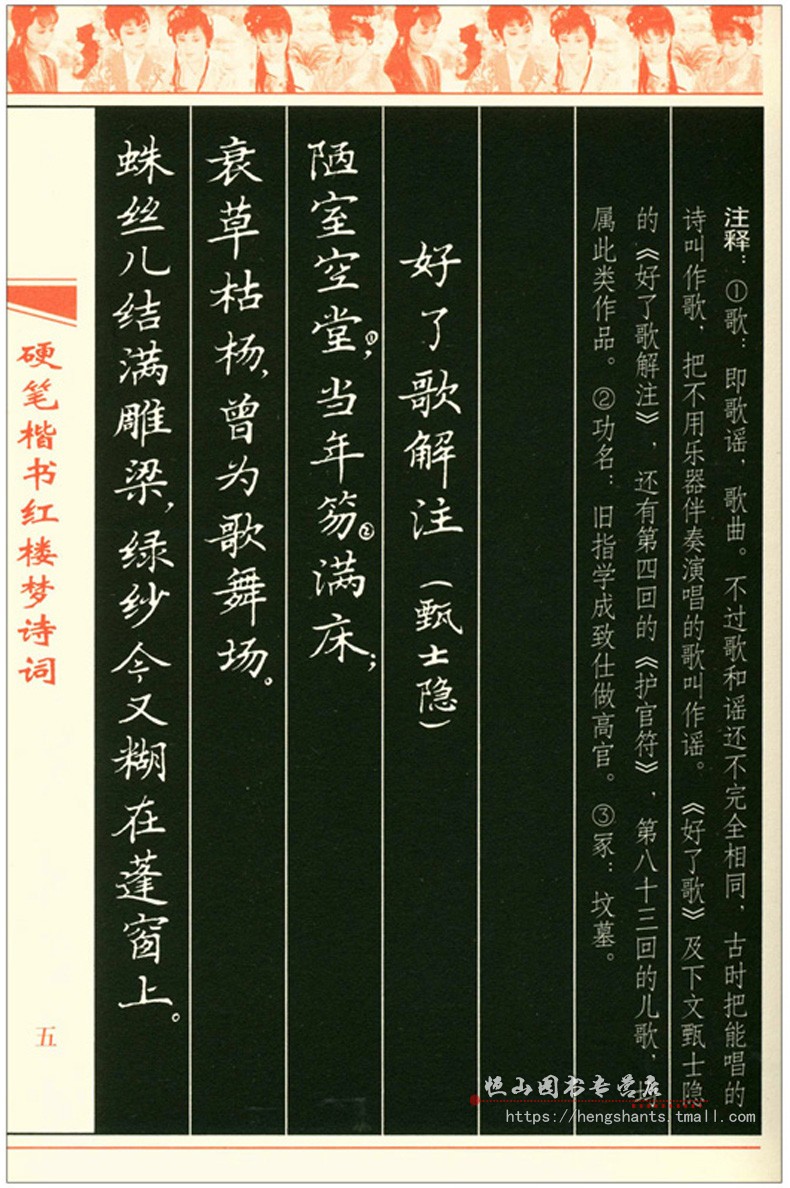 注释：①歌：即歌谣、歌曲。不过歌和谣还不完全相同，古时把能唱的
诗叫作歌，把不用乐器伴奏演唱的歌叫作谣。《好了歌》及下文甄士隐
的《好了歌解注》，还有第四回的《护官符》、第八十三回的儿歌，
属此类作品。②功名：旧指学成致仕做高官。③冢：坟墓。
好了歌解注（甄士隐）
陋室空堂①，当年笏②满床；
衰草枯杨，曾为歌舞场。
蛛丝儿结满雕梁，绿纱今又糊在蓬窗上。
硬笔楷书红楼梦诗词
五
恒山图书专营店
https://hengshants.tmall.com